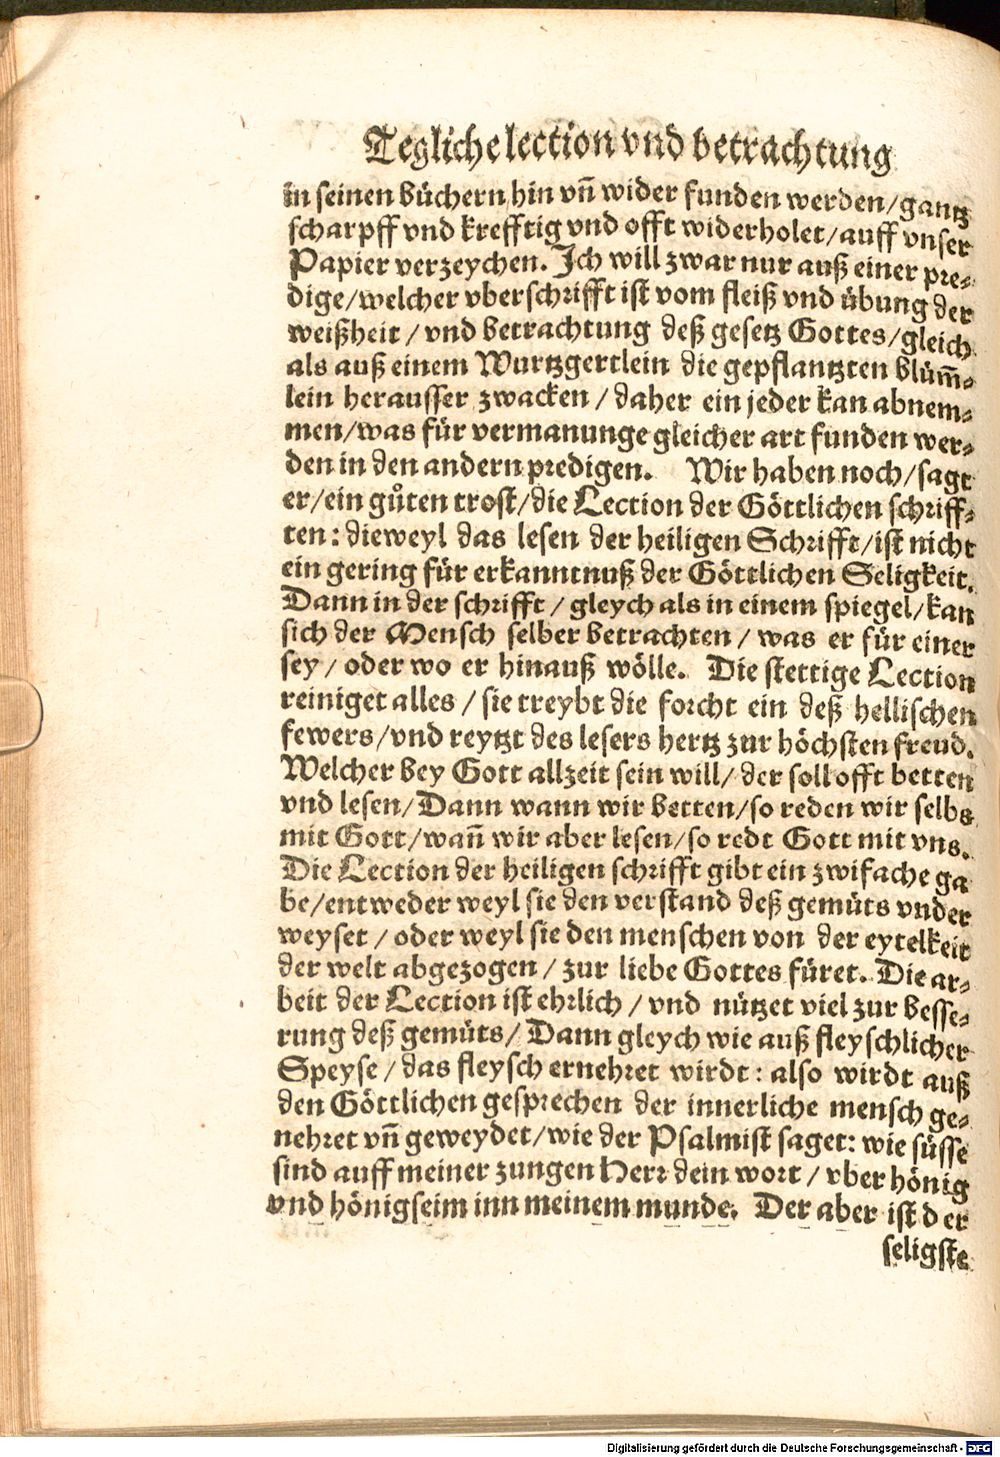 Tegliche lection vnd betrachtung
in seinen büchern hin vñ wider funden werden/gantz
scharpff vnd krefftig vnd offt widerholet/auff vnser
Papier verzeychen. Ich will zwar nur auß einer pre⸗
dige/welcher vberschrifft ist vom fleiß vnd übung der
weißheit / vnd betrachtung deß gesetz Gottes/gleich
als auß einem Wurtzgertlein die gepflantzten blüm̃⸗
lein heraußer zwacken / daher ein jeder kan abnem⸗
men/was für vermanunge gleicher art funden wer⸗
den in den andern predigen. Wir haben noch/sagt
er/ein gůten trost/die Lection der Göttlichen schriff⸗
ten: dieweyl das lesen der heiligen Schrifft/ist nicht
ein gering für erkanntnuß der Göttlichen Seligkeit.
Dann in der schrifft / gleych als in einem spiegel/kan
sich der Mensch selber betrachten / was er für einer
sey / oder wo er hinauß wölle. Die stettige Lection
reiniget alles / sie treybt die forcht ein deß hellischen
fewers/vnd reytzt des lesers hertz zur höchsten freud.
Welcher bey Gott allzeit sein will/ der soll offt betten
vnd lesen/Dann wann wir betten/so reden wir selbs
mit Gott/wañ wir aber lesen/so redt Gott mit vns.
Die Lection der heiligen schrifft gibt ein zwifache ga
be/entweder weyl sie den verstand deß gemüts vnder
weyset / oder weyl sie den menschen von der eytelkeit
der welt abgezogen / zur liebe Gottes füret. Die ar⸗
beit der Lection ist ehrlich / vnd nützet viel zur besse⸗
rung deß gemüts/ Dann gleych wie auß fleyschlicher
Speyse / das fleysch ernehret wirdt: also wirdt auß
den Göttlichen gesprechen der innerliche mensch ge⸗
nehret vñ geweydet/wie der Psalmist saget: wie süsse
sind auff meiner zungen Herr dein wort / vber hönig
vnd hönigseim inn meinem munde. Der aber ist der
seligste
Digitalisierung gefördert durch die Deutsche Forschungsgemeinschaft - DFG